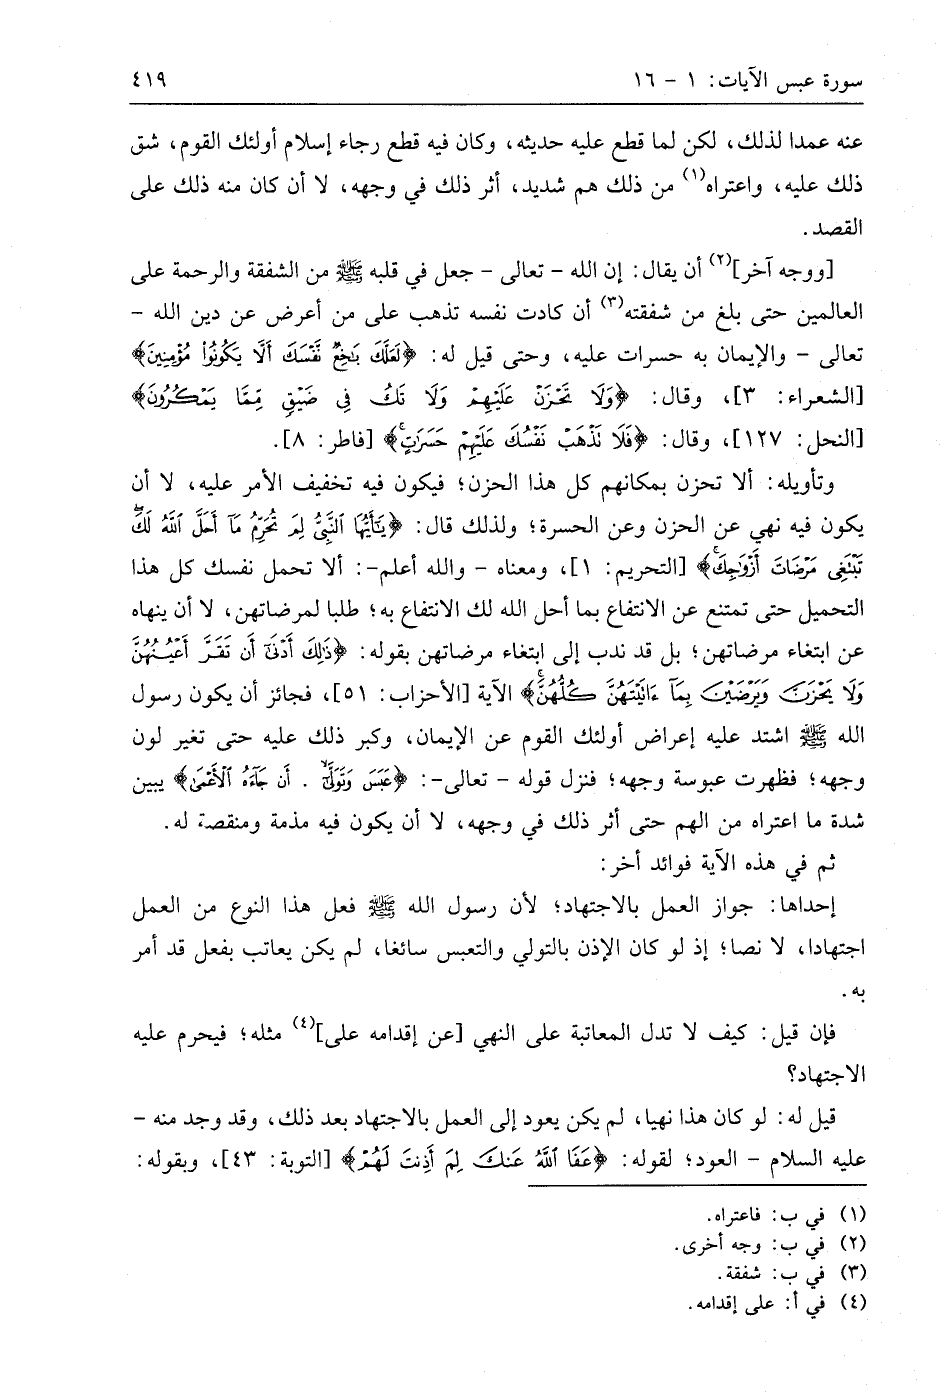 سورة عبس الآيات: ١ - ١٦ ٤١٩
عنه عمدا لذلك، لكن لما قطع عليه حديثه، وكان فيه قطع رجاء إسلام أولئك القوم، شق
ذلك عليه، واعتراه(١) من ذلك هم شديد، أثر ذلك في وجهه، لا أن كان منه ذلك على
القصد.
[ووجه آخر](٢) أن يقال: إن الله - تعالى - جعل في قلبه ﷺ من الشفقة والرحمة على
العالمين حتى بلغ من شفقته(٣) أن كادت نفسه تذهب على من أعرض عن دين الله -
تعالى - والإيمان به حسرات عليه، وحتى قيل له: ﴿لَعَلَّكَ بَٰخِعٌ نَّفۡسَكَ أَلَّا يَكُونُواْ مُؤۡمِنِينَ﴾
[الشعراء: ٣]، وقال: ﴿وَلَا تَحۡزَنۡ عَلَيۡهِمۡ وَلَا تَكُ فِي ضَيۡقٖ مِّمَّا يَمۡكُرُونَ﴾
[النحل: ١٢٧]، وقال: ﴿فَلَا تَذۡهَبۡ نَفۡسُكَ عَلَيۡهِمۡ حَسَرَٰتٍۚ﴾ [فاطر: ٨].
وتأويله: ألا تحزن بمكانهم كل هذا الحزن؛ فيكون فيه تخفيف الأمر عليه، لا أن
يكون فيه نهي عن الحزن وعن الحسرة؛ ولذلك قال: ﴿يَٰٓأَيُّهَا ٱلنَّبِيُّ لِمَ تُحَرِّمُ مَآ أَحَلَّ ٱللَّهُ لَكَۖ
تَبۡتَغِي مَرۡضَاتَ أَزۡوَٰجِكَۚ﴾ [التحريم: ١]، ومعناه - والله أعلم-: ألا تحمل نفسك كل هذا
التحميل حتى تمتنع عن الانتفاع بما أحل الله لك الانتفاع به؛ طلبا لمرضاتهن، لا أن ينهاه
عن ابتغاء مرضاتهن؛ بل قد ندب إلى ابتغاء مرضاتهن بقوله: ﴿ذَٰلِكَ أَدۡنَىٰٓ أَن تَقَرَّ أَعۡيُنُهُنَّ
وَلَا يَحۡزَنَّ وَيَرۡضَيۡنَ بِمَآ ءَاتَيۡتَهُنَّ كُلُّهُنَّۚ﴾ الآية [الأحزاب: ٥١]، فجائز أن يكون رسول
الله ﷺ اشتد عليه إعراض أولئك القوم عن الإيمان، وكبر ذلك عليه حتى تغير لون
وجهه؛ فظهرت عبوسة وجهه؛ فنزل قوله - تعالى-: ﴿عَبَسَ وَتَوَلَّىٰٓ . أَن جَآءَهُ ٱلۡأَعۡمَىٰ﴾ يبين
شدة ما اعتراه من الهم حتى أثر ذلك في وجهه، لا أن يكون فيه مذمة ومنقصة له.
ثم في هذه الآية فوائد أخر:
إحداها: جواز العمل بالاجتهاد؛ لأن رسول الله ﷺ فعل هذا النوع من العمل
اجتهادا، لا نصا؛ إذ لو كان الإذن بالتولي والتعبس سائغا، لم يكن يعاتب بفعل قد أمر
به.
فإن قيل: كيف لا تدل المعاتبة على النهي [عن إقدامه على](٤) مثله؛ فيحرم عليه
الاجتهاد؟
قيل له: لو كان هذا نهيا، لم يكن يعود إلى العمل بالاجتهاد بعد ذلك، وقد وجد منه -
عليه السلام - العود؛ لقوله: ﴿عَفَا ٱللَّهُ عَنكَ لِمَ أَذِنتَ لَهُمۡ﴾ [التوبة: ٤٣]، وبقوله:
(١) في ب: فاعتراه.
(٢) في ب: وجه أخرى.
(٣) في ب: شفقة.
(٤) في أ: على إقدامه.